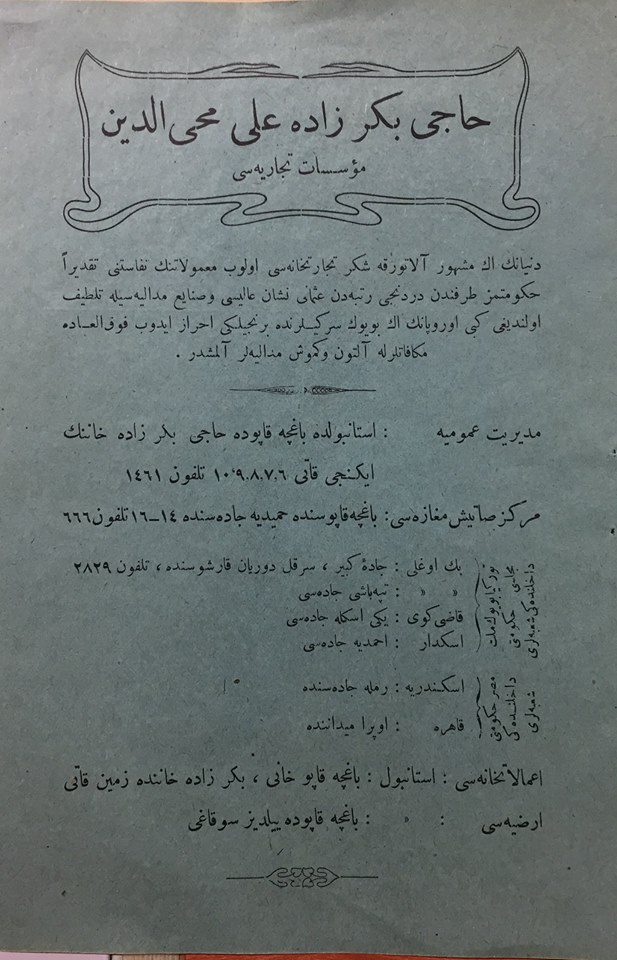 حاجی بكر زاده علی محی الدین
مؤسسات تجاریه‌سی
دنیانك اك مشهور آلاتورقه شكر تجارتخانه‌سی اولوب معمولاتنك نفاستنی تقدیراً
حكومتمز طرفندن دردنجی رتبه‌دن عثمانی نشان عالیسی وصنایع مدالیه‌سیله تلطیف
اولندیغی كبی اوروپانك اك بویوك سرگیلرنده برنجیلكی احراز ایدوب فوق‌العاده
مكافاتلرله آلتون وكموش مدالیه‌لر آلمشدر .
مدیریت عمومیه : استانبولده باغچه قاپوده حاجی بكر زاده خاننك
ایكنجی قاتی ۱۰،۹،۸،۷،۶ تلفون ۱٤٦۱
مركز صاتیش مغازه‌سی: باغچه‌قاپوسنده حمیدیه جاده‌سنده ۱٤–۱٦ تلفون ٦٦٦
توركیا بویوك ملت مجلسی حكومتی داخلنده‌كی شعبه‌لری
بك اوغلی : جادۀ كبیر ، سرقل دوریان قارشوسنده ، تلفون ۲۸۲۹
» » : تپه‌باشی جاده‌سی
قاضی‌كوی : یكی اسكله جاده‌سی
اسكدار : احمدیه جاده‌سی
مصر حكومتی داخلنده‌كی شعبه‌لری
اسكندریه : رمله جاده‌سنده
قاهره : اوپرا میداننده
اعمالاتخانه‌سی : استانبول : باغچه قاپو خانی ، بكر زاده خاننده زمین قاتی
ارضیه‌سی : » : باغچه قاپوده ییلدیز سوقاغی